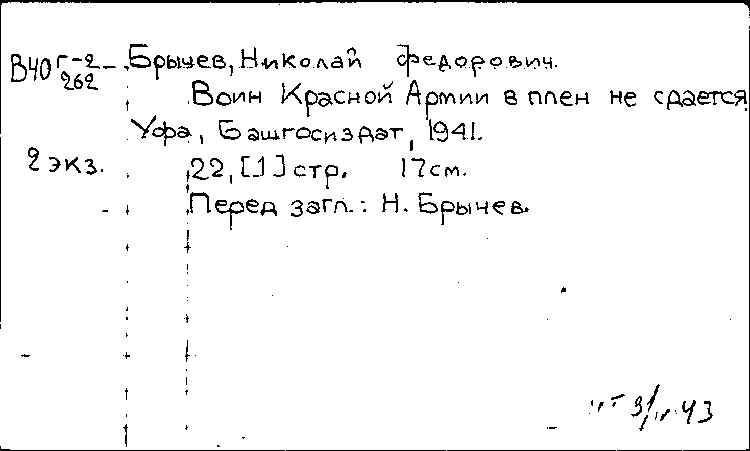 В40 Г-2 Брычев, Николай Федорович.
262
Воин Красной Армии в плен не сдается
Уфа, Башгосиздат, 1941.
2 экз. 22, [1] стр. 17см.
Перед загл.: Н. Брычев.
43